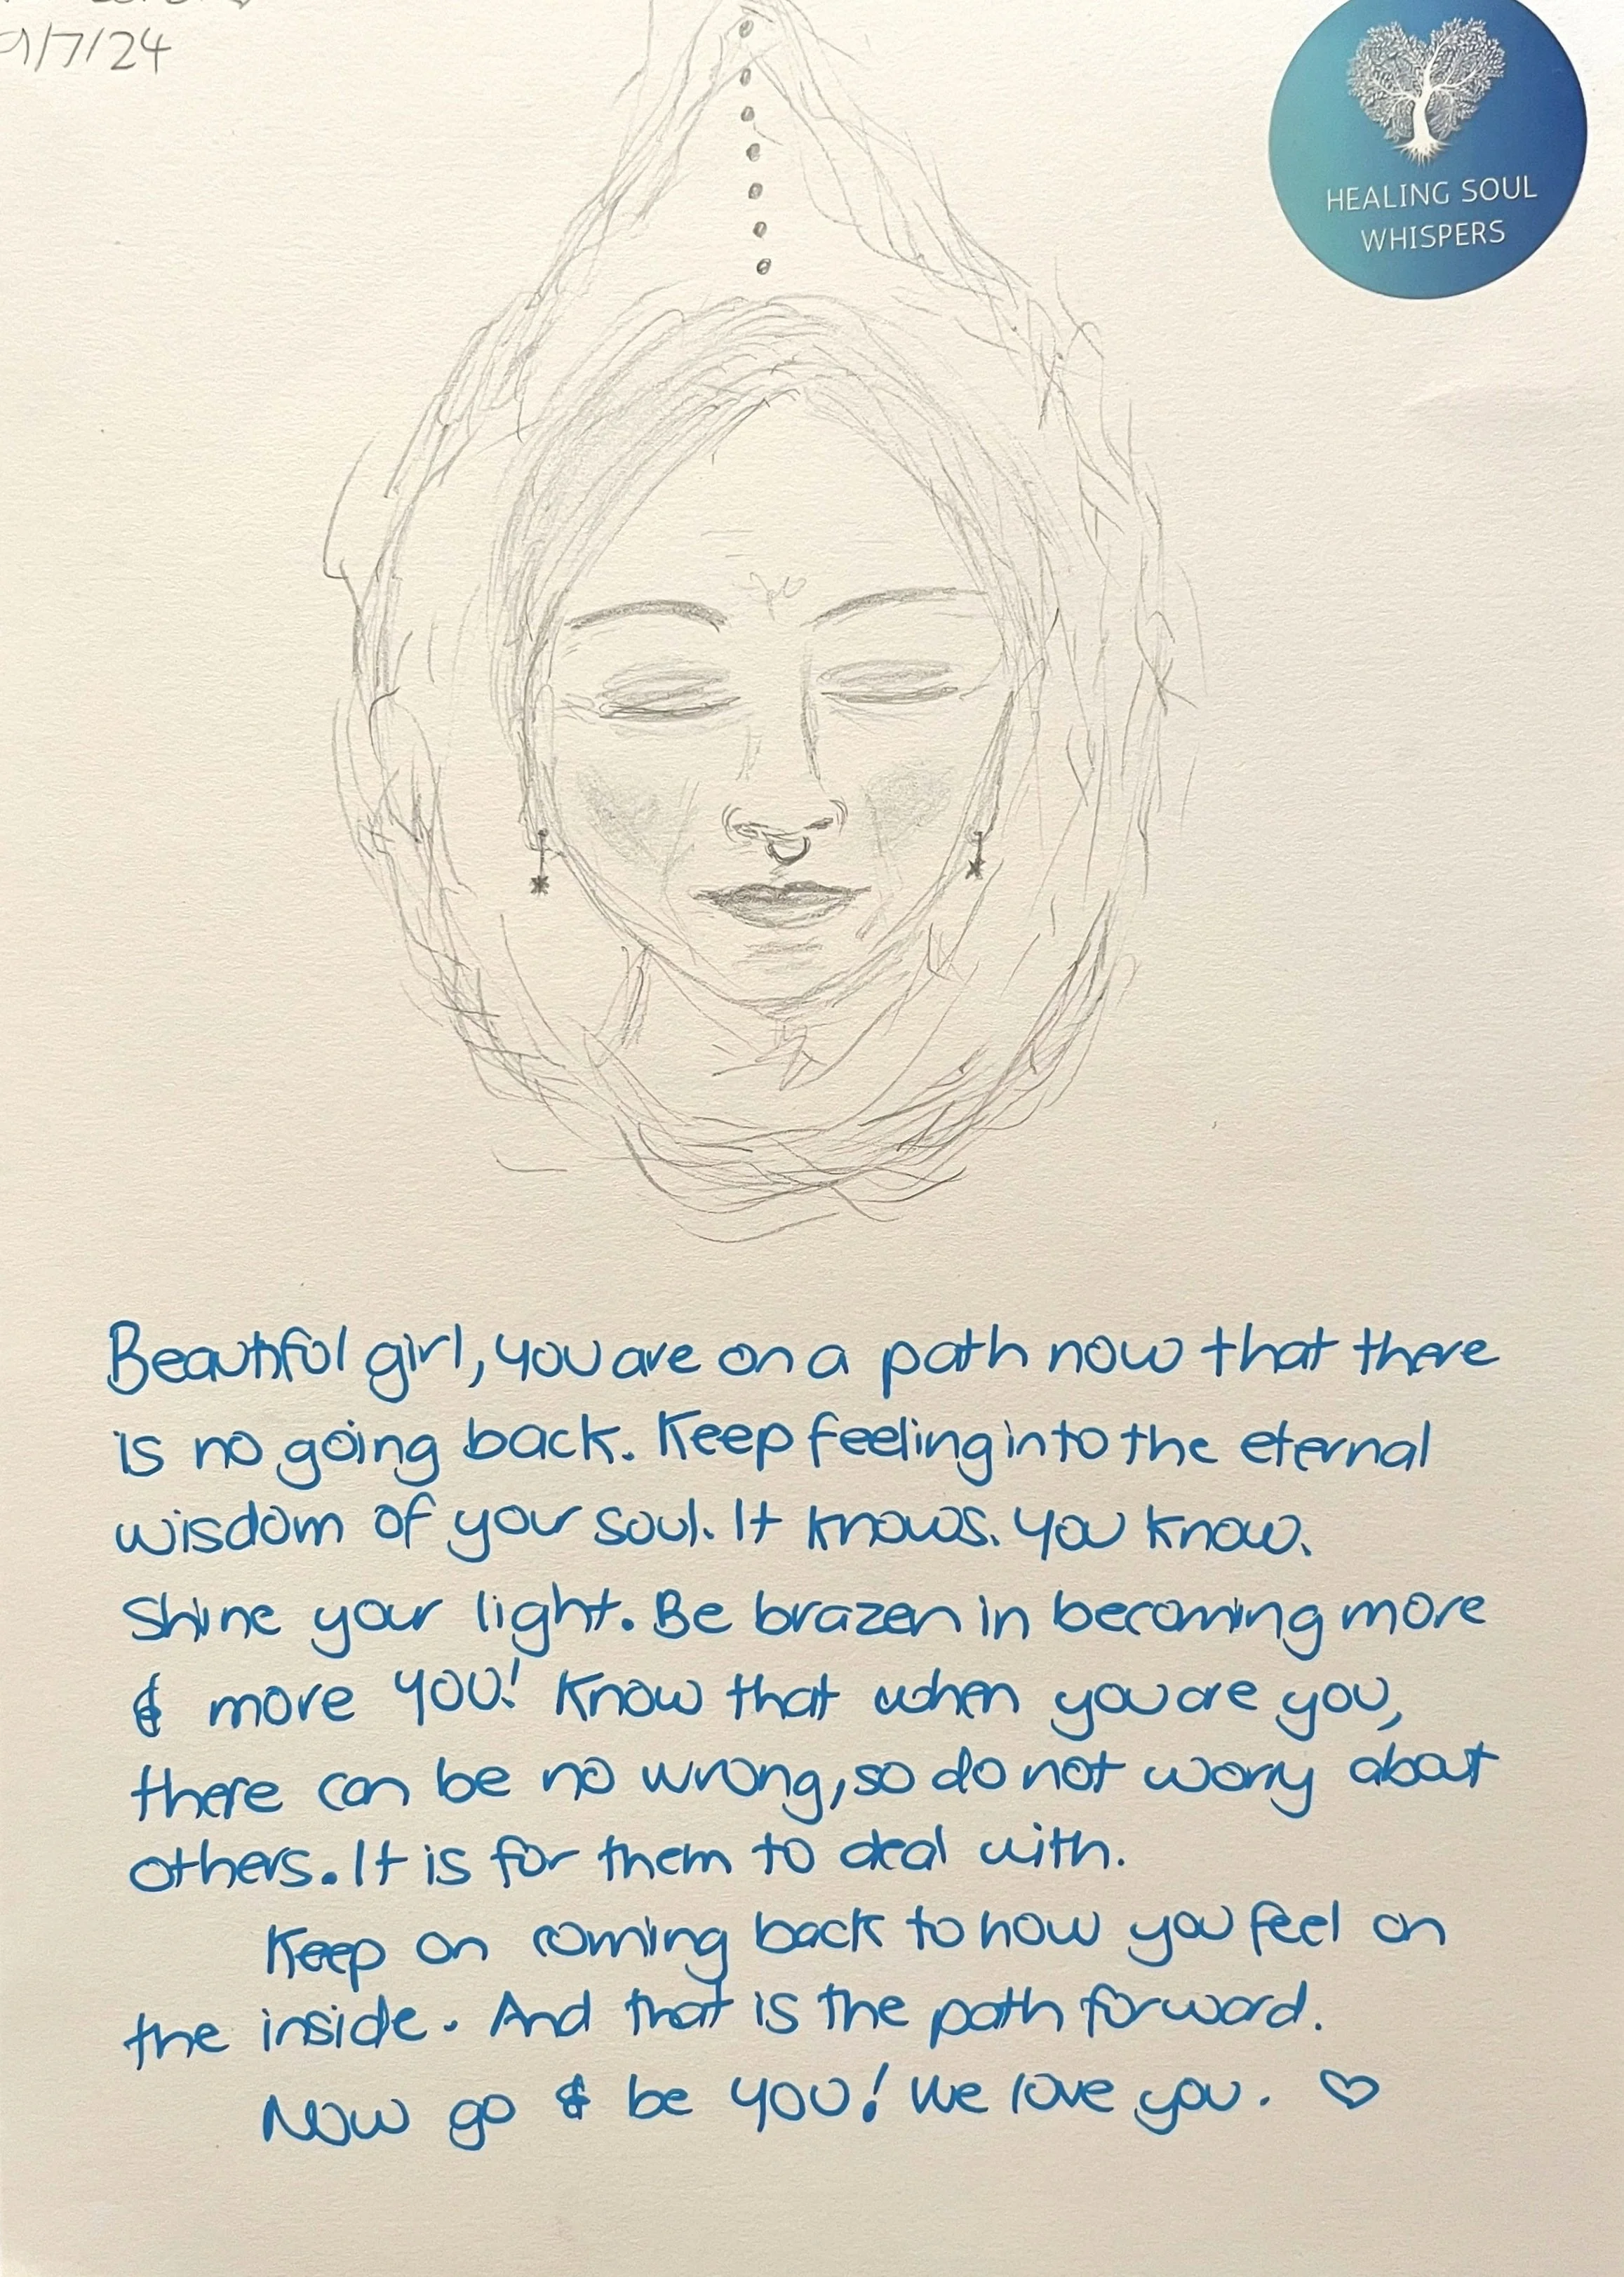 9/7/24
HEALING SOUL
WHISPERS
Beautiful girl, you are on a path now that there
is no going back. Keep feeling into the eternal
wisdom of your soul. It knows. You know.
Shine your light. Be brazen in becoming more
& more YOU! Know that when you are you,
there can be no wrong, so do not worry about
others. It is for them to deal with.
Keep on coming back to how you feel on
the inside. And that is the path forward.
Now go & be YOU! We love you. ♡